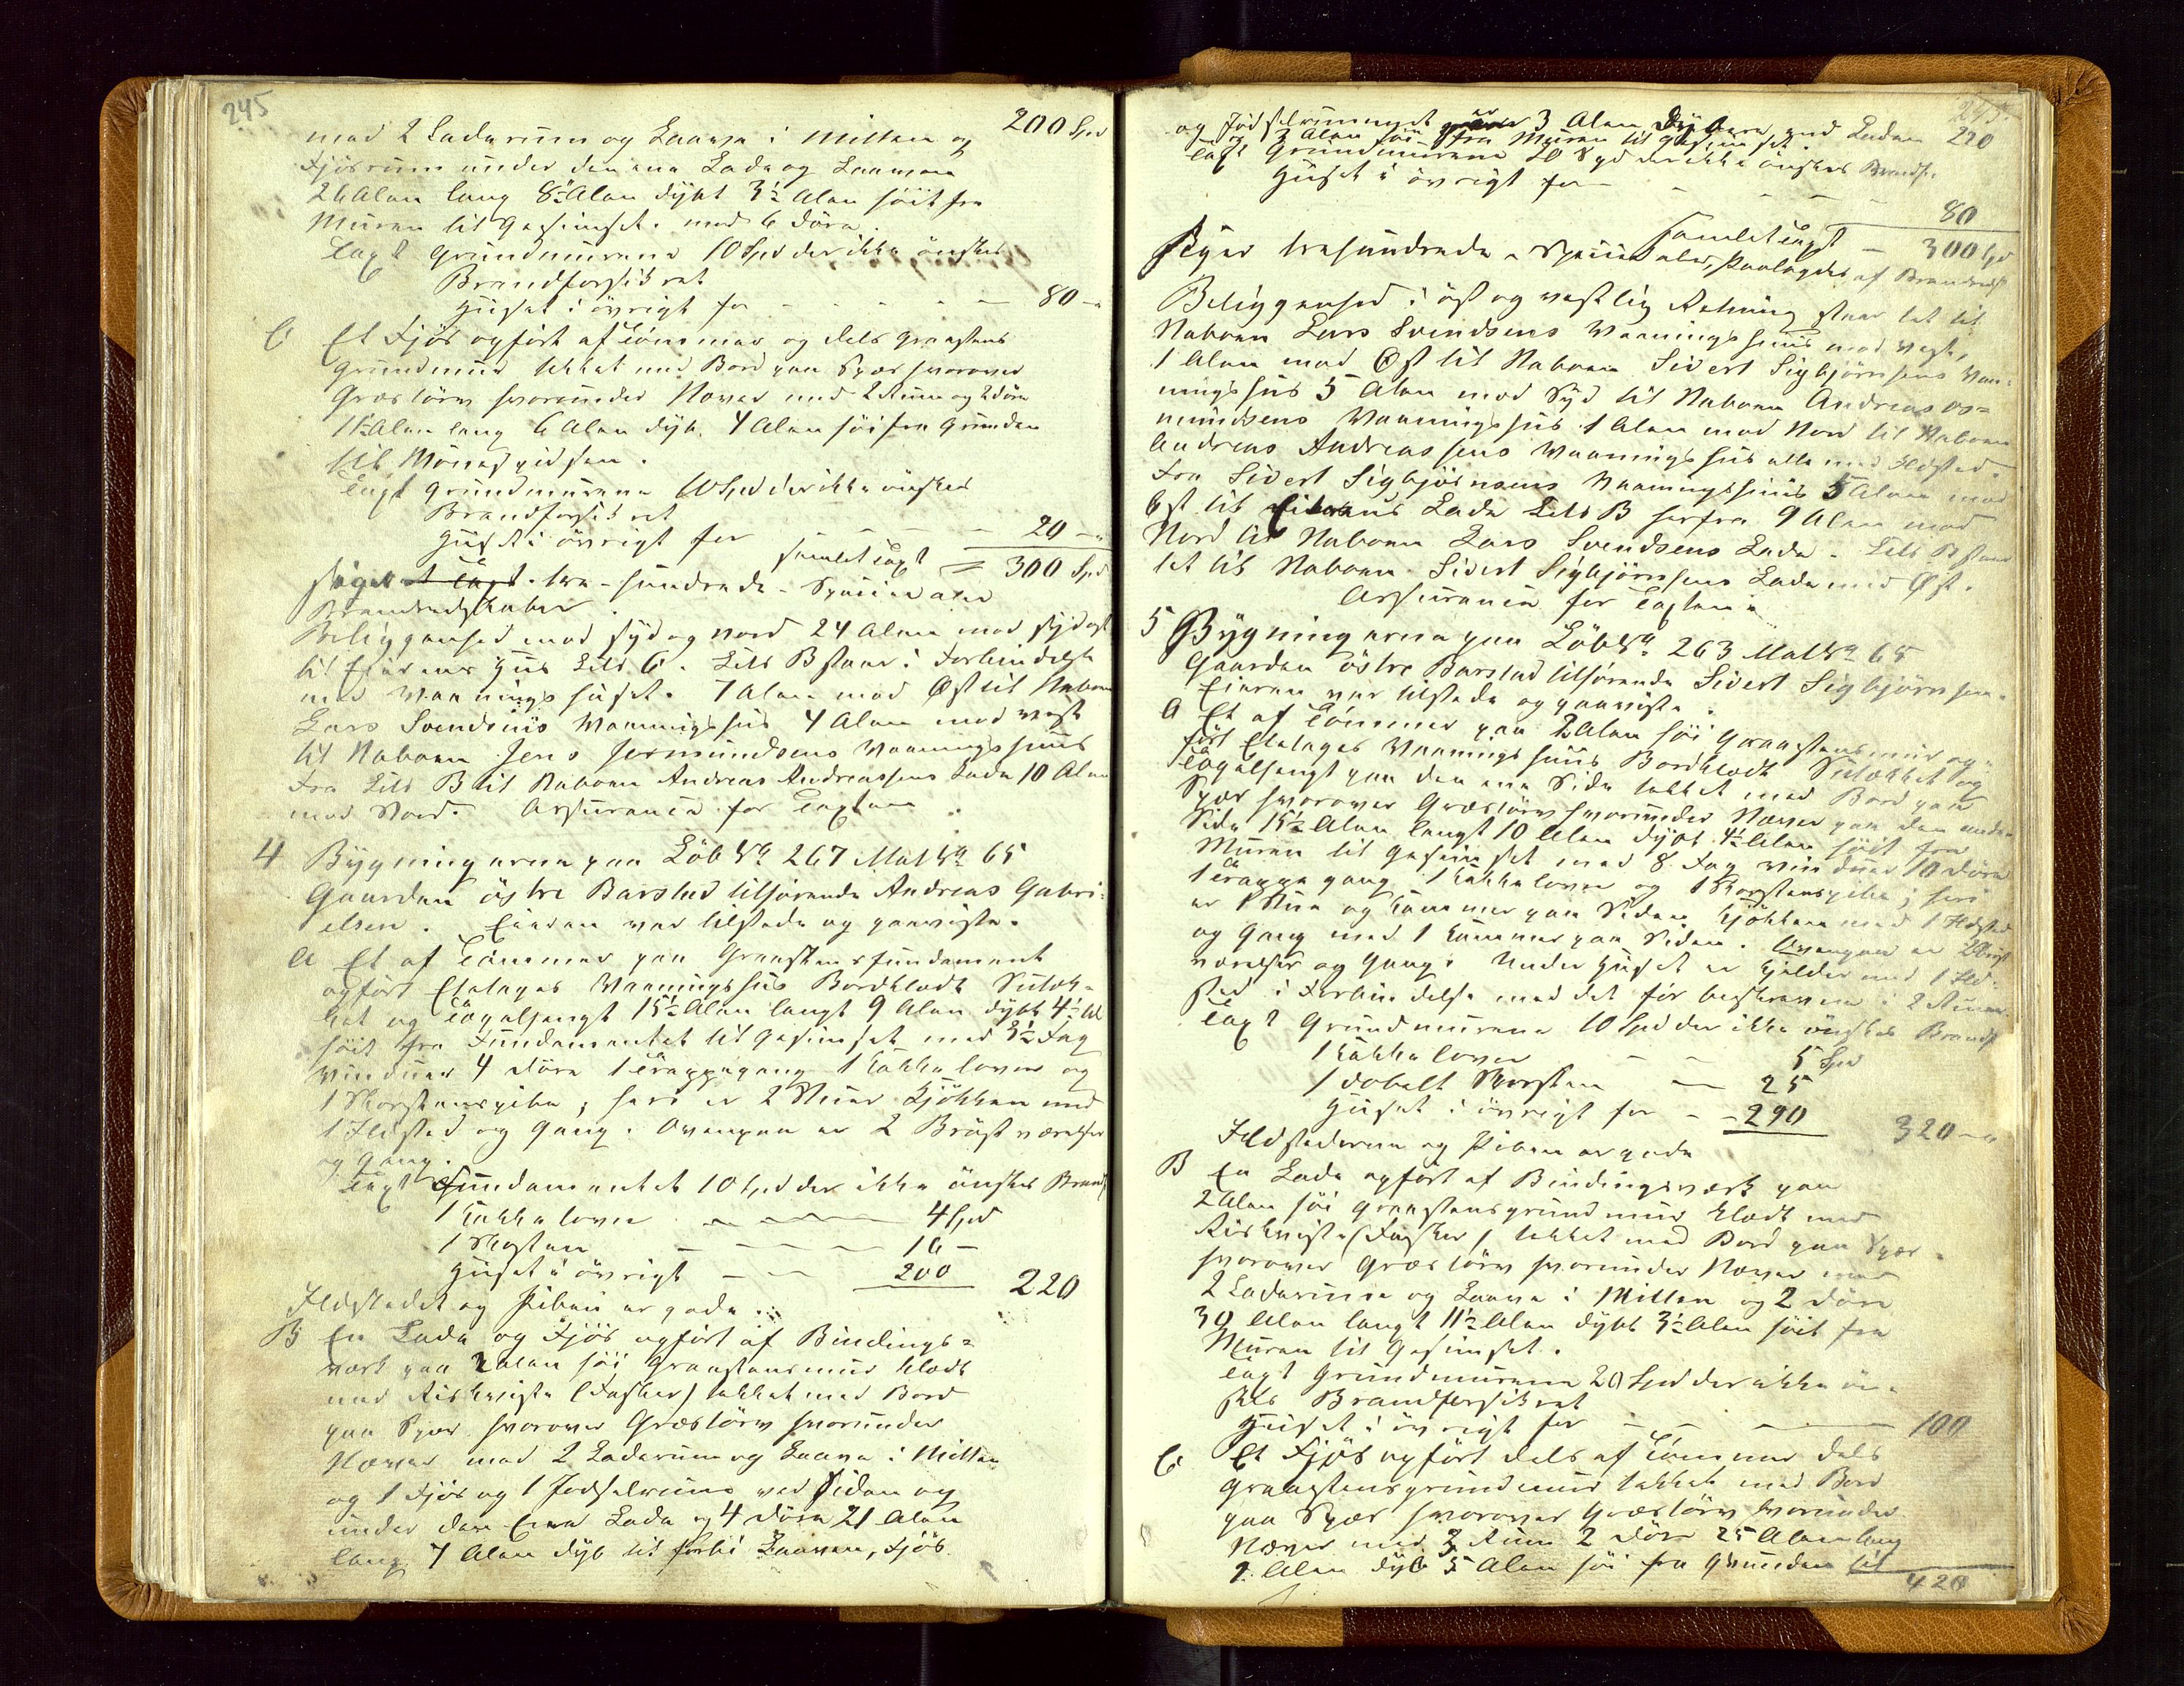 245
med 2 Laderum og Laave i Mitten og 200 Spd
Fjösrum under den ene Lade og Laaven
26 Alen lang 8½ Alen dybt 3½ Alen höit fra
Muren til Gesimset. med 6 Döre.
Taxt Grundmurene 10 Spd der ikke önskes
Brandforsikret
Huset i övrigt for - - - - 80 -"
C Et Fjös opfört af Tömmer og dels Graastens
Grundmur tækket med Bord paa Spær hvorover
Græstörv hvorunder Næver med 2 Rum og 2 Döre
11½ Alen lang 6 Alen dyb. 4 Alen höi fra Grunden
til Mönespidsen.
Taxt Grundmurene 10 Spd der ikke önskes
Brandforsikret
Huset i övrigt for - - - 20 -"
samlet Taxt = 300 Spd
siger tre-hundrede-Speciedaler
Brandredskaber.
Beliggenhed mod syd og nord 24 Alen mod sydost
til Eierens Hus Litr C. Litr B staar i Forbindelse
med Vaaningshuset. 7 Alen mod Öst til Naboen
Lars Svendsens Vaaningshus 4 Alen mod vest
til Naboen Jens Jermundsens Vaaningshuus
Fra Litr B til Naboen Andreas Andreassens Lade 10 Alen
mod Nord. Assurance for Taxten.
4 Bygningerne paa Löb No 267 Mat No 65
Gaarden östre Barstad tilhörende Andreas Gabri-
elsen. Eieren var tilstede og paaviste.
A Et af Tömmer paa Graastensfundament
opfört Etatages Vaaningshus Bordklædt Sutæk-
ket og Tagelhengt 15½ Alen langt 9 Alen dybt 4½ Al
höit fra Fundamentet til Gesimset med 8½ Fag
Vinduer 4 Döre 1 Trappegang 1 Kakkelovn og
1 Skorstenspibe; heri er 2 Stuer Kjökken med
1 Ildsted og Gang. Ovenpaa er 2 Bröstværelser
og Gang.
Taxt Fundamentet 10 Spd der ikke önskes Brandf
1 Kakkelovn - - - 4 Spd
1 Skosten - - - 16 -
Huset i övrigt - - 200 220
Ildstedet og Piben er gode.
B En Lade og Fjös opfört af Bindings-
værk paa 2 Alen höi Graastensmur klædt
med Riskviste (Fasker) tækket med Bord
paa Spær hvorover Græstörv hvorunder
Næver med 2 Laderum og Laave i Mitten
og 1 Fjös og 1 Jödselrum ved Siden og
under den Ene Lade og 4 Döre 21 Alen
lang 7 Alen dyb til forbi Laaven, Fjös
og Jödselrummet er 3 Alen Dybere end Laden 220
og 3 Alen höi fra Muren til Gesimset.
Taxt Grundmurene 20 Spd der ikke önskes Brandf.
Huset i övrigt for - - - - 80
samlet Taxt - 300 Spd
Siger trehundrede - Speciedaler, Paalagdes af Brandredsk
Beliggenhed i öst og vestlig Retning staar tæt til
Naboen Lars Svendsens Vaaningshuus mod vest,
1 Alen mod Öst til Naboen Sivert Sigbjörnsens Vaa-
ningshus 5 Alen mod Syd til Naboen Andreas Os-
mundsens Vaaningshus 1 Alen mod Nord til Naboen
Andreas Andreassens Vaaningshus alle med Ildsted.
Fra Sivert Sigbjörnsens Vaaningshuus 5 Alen mod
Öst til Eierens Lade Litr B herfra 9 Alen mod
Nord til Naboen Lars Svendsens Lade. Litr B staar
tæt til Naboen Sivert Sigbjörnsens Lade mod Öst.
Assurance for Taxten.
5 Bygningerne paa Löb No 263 Mat No 65
Gaarden östre Barstad tilhörende Sivert Sigbjörnsen.
Eieren var tilstede og paaviste.
A Et af Tömmer paa 2 Alen höi Graastensmur op-
fört Etatages Vaaningshuus Bordklædt Sutækket og
Tagelhengt paa den ene Side tækket med Bord paa
Spær hvorover Græstörv hvorunder Næver paa den anden
Side 15½ Alen langt 10 Alen dybt 4½ Alen höit fra
Muren til Gesimset med 8 Fag Vinduer 10 Döre
1 Trappegang 1 Kakkelovn og 1 Skorstenspibe; heri
er 1 Stue og Kammer paa Siden Kjökken med 1 Ildsted
og Gang med 1 Kammer paa Siden. Ovenpaa er 2 Bröst
værelser og Gang. Under Huset er Kjelder med 1 Ild-
sted i Forbindelse med det för beskrevne i 2 Rum.
Taxt Grundmurene 10 Spd der ikke önskes Brandf
1 Kakkelovn - - 5 Spd
1 dobelt Skorsten - 25
Huset i övrigt for - - 290 320 -"
Ildstederne og Piben er gode
B En Lade opfört af Bindingsværk paa
2 Alen höi Graastensgrundmur klædt med
Riskviste (Fasker) tækket med Bord paa Spær-
hvorover Græstörv hvorunder Næver med
2 Laderum og Laave i Mitten og 2 Döre
30 Alen langt 11½ Alen dybt 3½ Alen höit fra
Muren til Gesimset.
Taxt Grundmurene 20 Spd der ikke ön-
skes Brandforsikret
Huset i övrigt for - - - - 100
C Et Fjös opfört dels af Tömmer dels
Graastensgrundmur tækket med Bord
paa Spær hvorover Græstörv hvorunder
Næver med 3 Rum 2 Döre 25 Alen lang
9 Alen dyb 5 Alen höi fra Grunden til
420